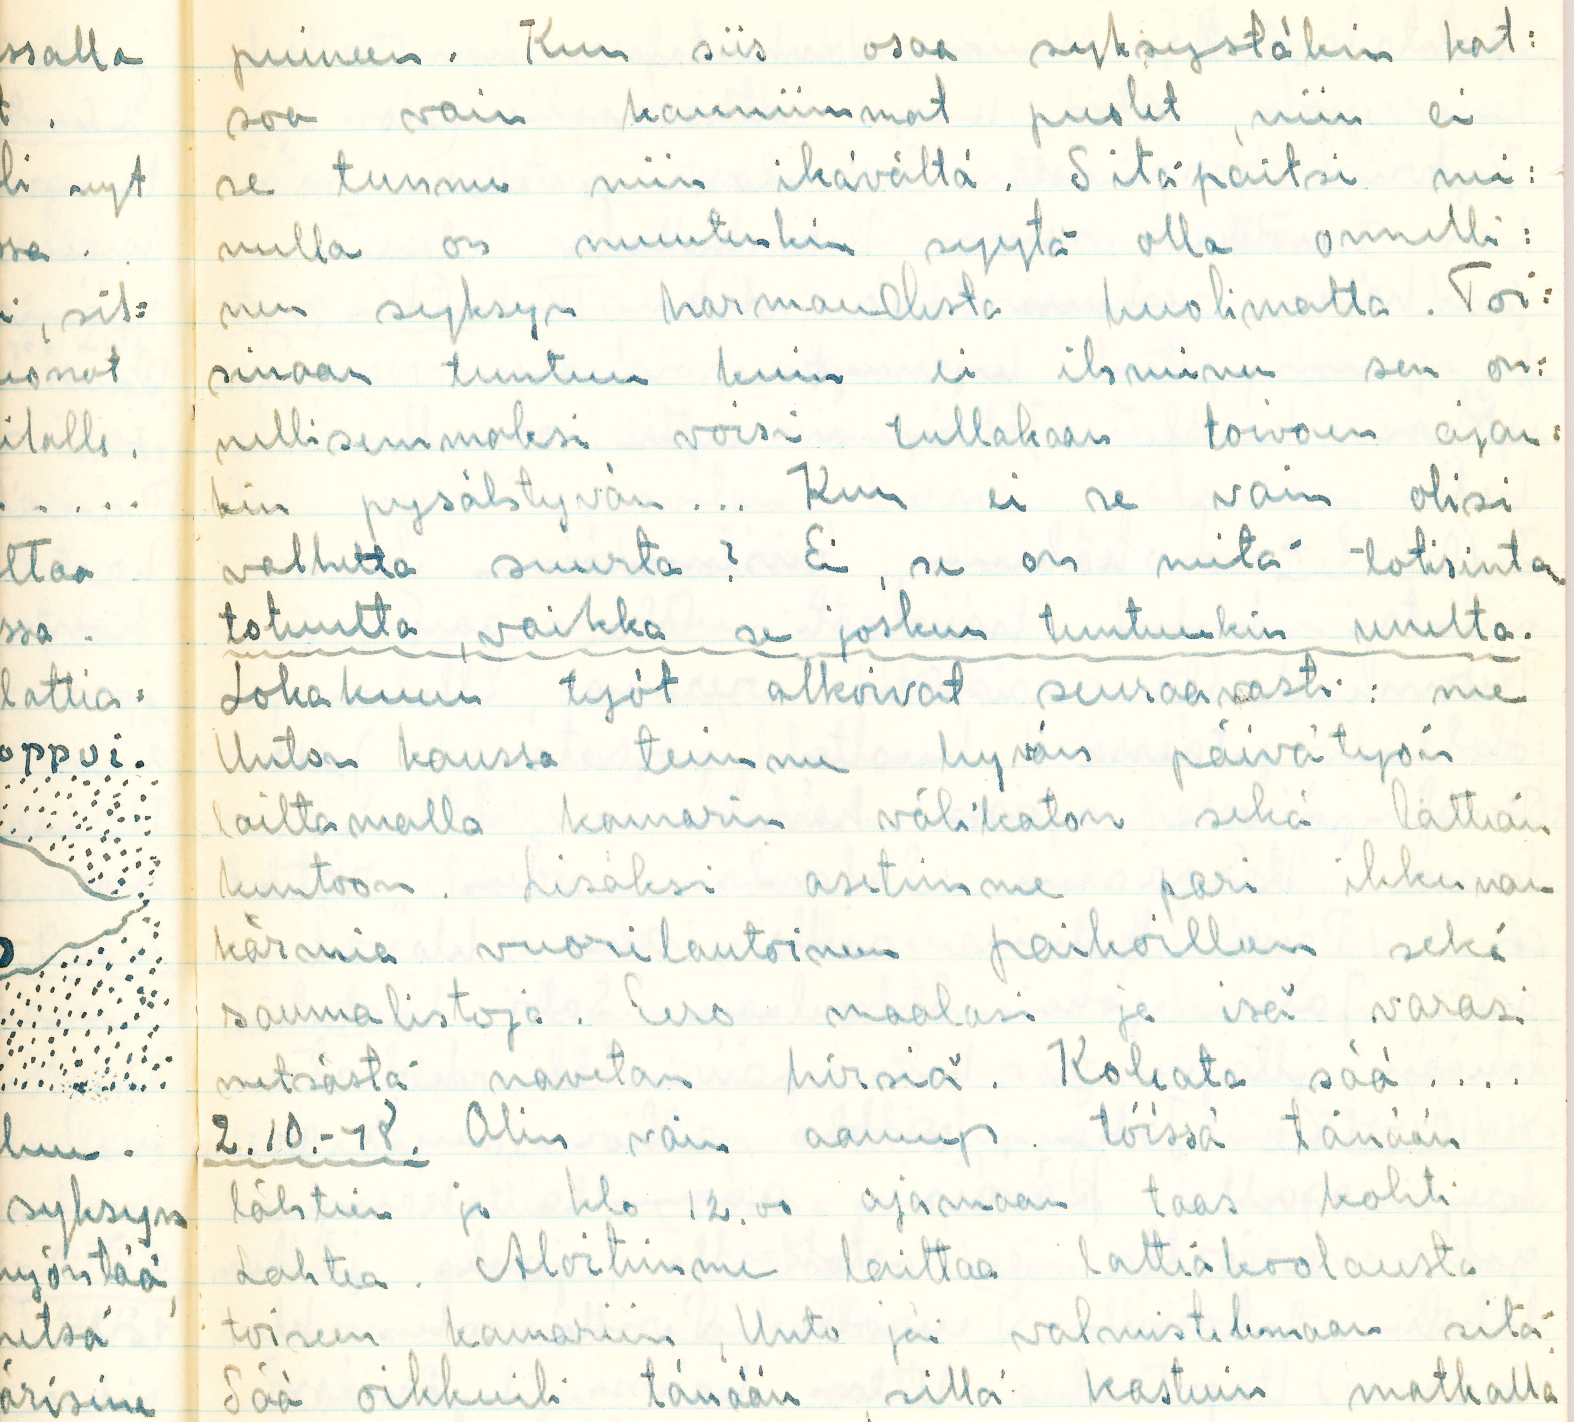 ssalla
t.
li nyt
ssa..
i, sit=
uonot
italle.
.....
ttaa
ssa.
lattia=
oppui.
syksyn
myöntää,
metsä
ärisine
puineen. Kun siis osaa syksystäkin kat:
soa vain kauniimmat puolet, niin ei
se tunnu niin ikävältä. Sitäpaitsi mi:
nulla on muutenkin syytä olla onnelli:
nen syksyn harmaudesta huolimatta. Toi:
sinaan tuntuu kuin ei ihminen sen on:
nellisemmaksi voisi tullakaan toivoen ajan:
kin pysähtyvän... Kun ei se vain olisi
valhetta suurta? Ei, se on mitä totisinta
totuutta, vaikka se joskus tuntuukin unelta.
Lokakuun työt alkoivat seuraavasti: me
Unton kanssa teimme hyvän päivätyön
laittamalla kamarin välikaton sekä lattian
kuntoon. Lisäksi asetimme pari ikkunan
kärmiä vuorilautoineen paikoilleen sekä
saumalistoja. Eero maalasi ja isä varasi
metsästä navetan hirsiä. Koleata sää....
2.10.-48. Olin vain aamup. töissä tänään
lähtien jo klo 12.00 ajamaan taas kohti
Lahtea. Aloitimme laittaa lattiakoolausta
toiseen kamariin, Unto jäi valmistelemaan sitä
Sää oikkuili tänään, sillä kastuin matkalla